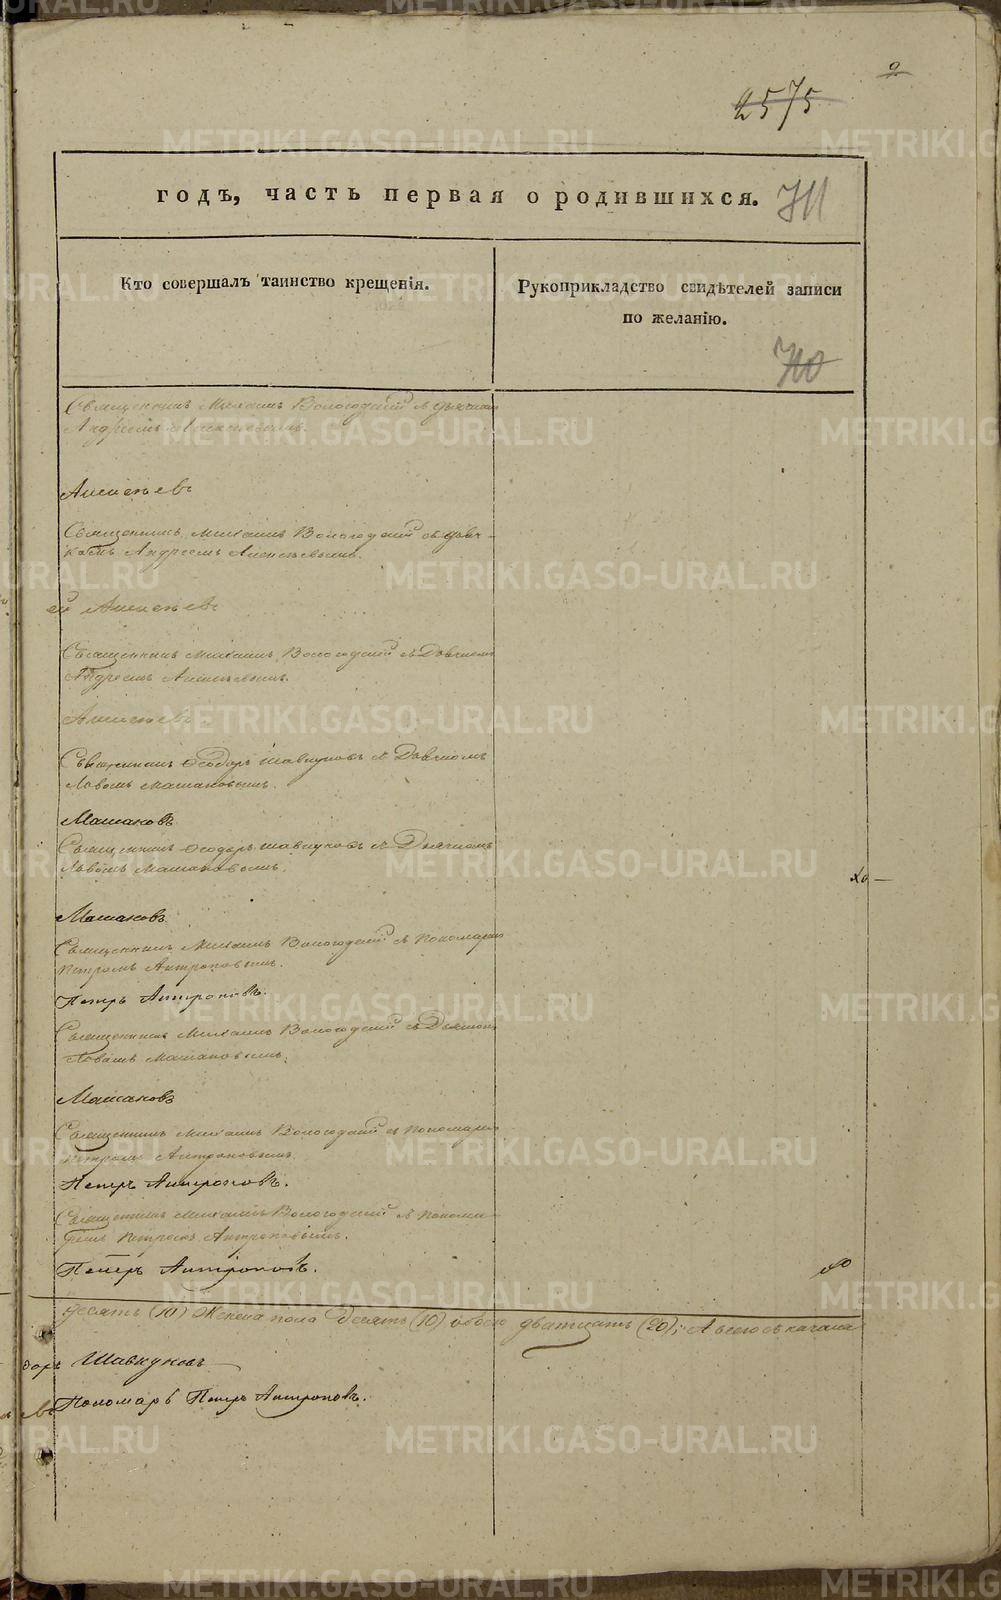 2575
годъ, часть первая о родившихся. 711
Кто совершалъ таинство крещенія.
Рукоприкладство свидѣтелей записи
по желанію.
710
Священникъ Михаилъ Вологодскій съ дьячкомъ
Андреемъ Алексѣевымъ.
Алексѣевъ
Священникъ Михаилъ Вологодскій съ дьяч-
комъ Андреемъ Алексѣевымъ.
ей Алексѣевъ
Священникъ Михаилъ Вологодскій съ Дьячкомъ
Андреемъ Алексѣевымъ.
Алексѣевъ
Священникъ Ѳеодоръ Шавкуновъ съ Дьячкомъ
Машаковымъ.
Машаковъ
Священникъ Ѳеодоръ Шавкуновъ съ Дьячкомъ
Машаковымъ.
Машаковъ
Священникъ Михаилъ Вологодскій съ пономаремъ
Петромъ Антроповымъ.
Петръ Антроповъ.
Священникъ Михаилъ Вологодскій съ Дьячкомъ
Машаковымъ.
Машаковъ
Священникъ Михаилъ Вологодскій съ пономаремъ
Петромъ Антроповымъ.
Петръ Антроповъ.
Священникъ Михаилъ Вологодскій съ понома-
ремъ Петромъ Антроповымъ.
Петръ Антроповъ.
десять (10) Женска пола Десять (10) обоего дватцать (20); А всего съ начала
доръ Шавкуновъ
Пономарь Петръ Антроповъ.
METRIKI.GASO-URAL.RU